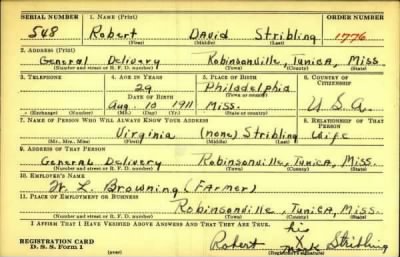 SERIAL NUMBER 1. NAME (Print) ORDER NUMBER
548 Robert David Stribling 1776
(First) (Middle) (Last)
2. ADDRESS (Print)
General Delivery Robinsonville, Tunica, Miss.
(Number and street or R. F. D. number) (Town) (County) (State)
3. TELEPHONE 4. AGE IN YEARS 5. PLACE OF BIRTH 6. COUNTRY OF CITIZENSHIP
29 Philadelphia
DATE OF BIRTH (Town or county)
Aug. 10 1911 Miss. U.S.A.
(Exchange) (Number) (Mo.) (Day) (Yr.) (State or country)
7. NAME OF PERSON WHO WILL ALWAYS KNOW YOUR ADDRESS 8. RELATIONSHIP OF THAT PERSON
Virginia (none) Stribling Wife
(Mr., Mrs., Miss) (First) (Middle) (Last)
9. ADDRESS OF THAT PERSON
General Delivery Robinsonville, Tunica, Miss.
(Number and street or R. F. D. number) (Town) (County) (State)
10. EMPLOYER'S NAME
W. L. Browning (Farmer)
11. PLACE OF EMPLOYMENT OR BUSINESS
Robinsonville, Tunica, Miss.
(Number and street or R. F. D. number) (Town) (County) (State)
I AFFIRM THAT I HAVE VERIFIED ABOVE ANSWERS AND THAT THEY ARE TRUE.
his
Robert X Stribling
mark
REGISTRATION CARD
D. S. S. Form 1 (over) (Registrant's signature)